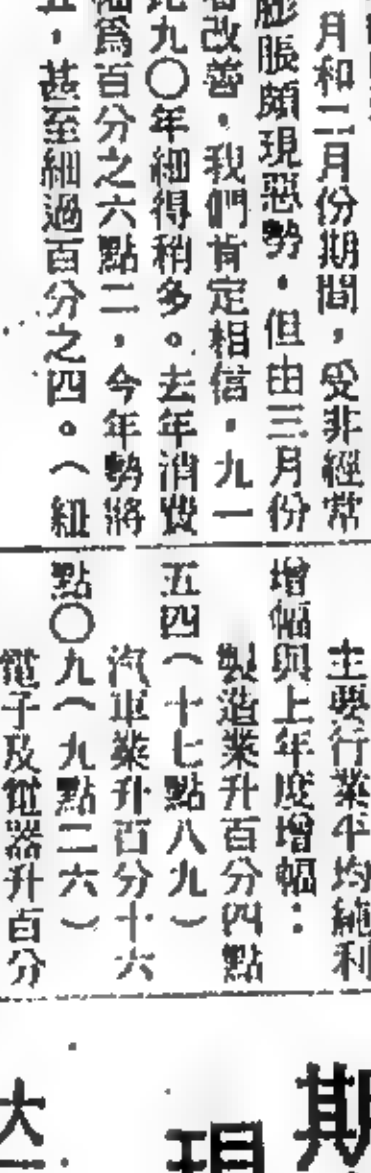 月和二月份期間，受非經常
膨脹頗現惡勢，但由三月份
改善，我們肯定相信，九一
九〇年細得稍多。去年消費
幅爲百分之六點二，今年勢將
五，甚至細過百分之四。（紐
主要行業平均純利
增幅與上年度增幅：
製造業升百分四點
五四（十七點八九）
汽車業升百分十六
點〇九（九點二六）
電子及電器升百分
期